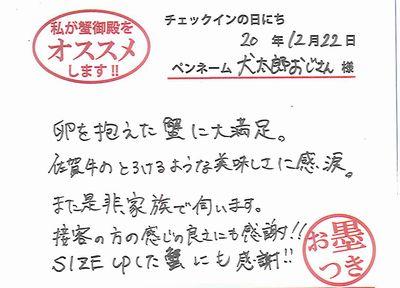 私が蟹御殿を
オススメ
します!!
チェックインの日にち
20 年 12月 22日
ペンネーム 犬太郎おじさん 様
卵を抱えた蟹に大満足。
佐賀牛のとろけるような美味しさに感涙。
また是非家族で伺います。
接客の方の感じの良さにも感謝!!
SIZE UPした蟹にも感謝!!
お墨
つき